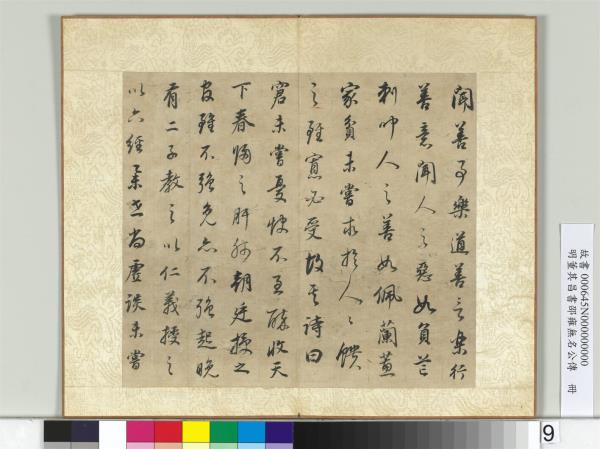 聞善事樂道善言樂行
善意聞人之惡如負芒
刺聞人之善如佩蘭蕙
家貧未嘗求於人人饋
之雖寡必受故其詩曰
窘未嘗憂飲不至醉收天
下春歸之肝肺朝廷授之
官雖不強免亦不強起晚
有二子教之以仁義授之
以六經舉世尚虛談未嘗
故書000645N000000000
明董其昌書邵雍無名公傳 冊
9